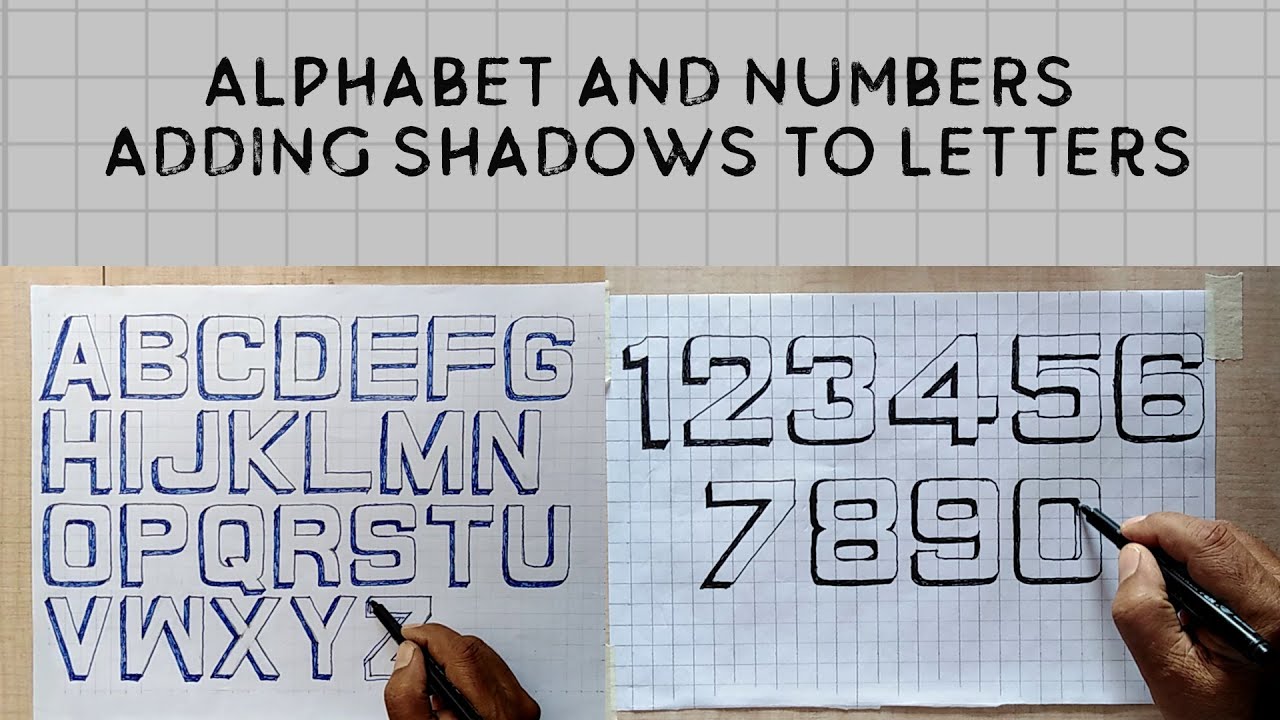 ALPHABET AND NUMBERS
ADDING SHADOWS TO LETTERS
ABCDEFG
HIJKLMN
OPQRSTU
VWXYZ
123456
7890